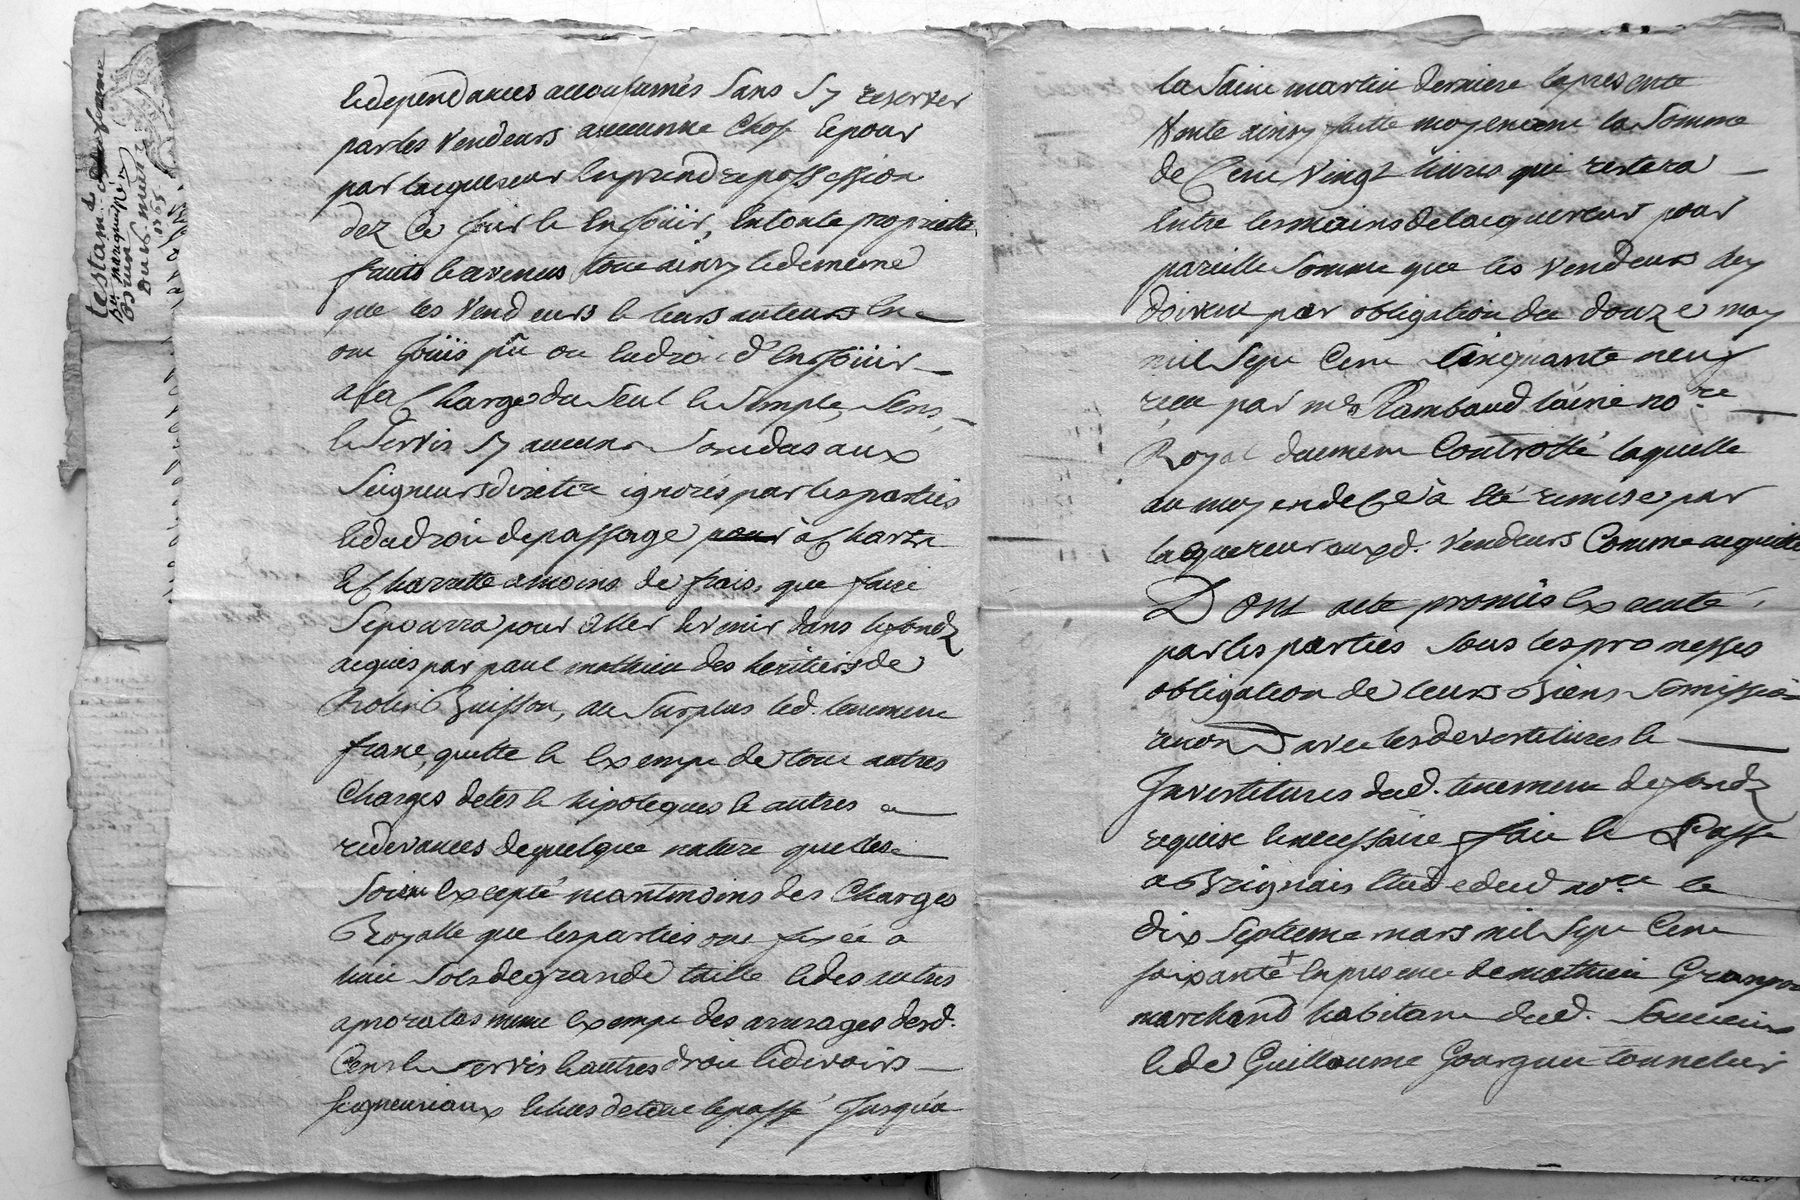 testam.t
du mars
1765
& dependances accoutumés sans sy reserver
par les vendeurs aucunne chose & pour
par lacquereur en prendre possession
dez ce jour & en jouir, en toute proprietté
fruits & revenus, tout ainsy & de meme
que les vendeurs & leurs auteurs en
ont jouis pû ou eu droit d'en jouir
a la charge du seul & simple sens,
& servis sy aucun sont dus aux
seigneurs directe ignorés par les parties
& du droit de passage à chart
& charrette a moins de frais, que faire
se pourra pour aller & venir dans le fondz
acquis par paul mathieu des heritiers de
Buisson, au surplus led. tenement
franc, quitte & exempt de tout autres
charges detes & hipoteques & autres
redevances de quelque nature quelles
soient excepté neantmoins des charges
Royalle que les parties ont fixée a
huit sols de grande taille & des autres
a prorata, meme exempt des arrerages desd.
Cens & servis & autres droit & devoirs
seigneuriaux echus de tout le passé jusqu'a
la Saint martin derniere la presente
Vente ainsy faitte moyenent la somme
de Cent Vingt livres qui restera
Entre les mains de lacquereur pour
pareille somme que les Vendeurs luy
doivent par obligation du douze may
mil sept Cent Cinquante neuf
reçu par me Rambaud lainé no.re
Royal duement Controllé laquelle
au moyen de ce à été remise par
lacquereur auxd. Vendeurs Comme acquittée
Dont acte promis executé,
par les parties sous les promesses
obligation de leurs Biens Somission
renon avec les devertitures &
Invertitures dud. tenement de fondz
requise & necessaire fait & Passé
à Brignais Etude dud no.re le
dix septieme mars mil sept Cent
soixante + En presence de mathieu
marchand habitant dud. Soucieu
& de Guillaume tonnelier